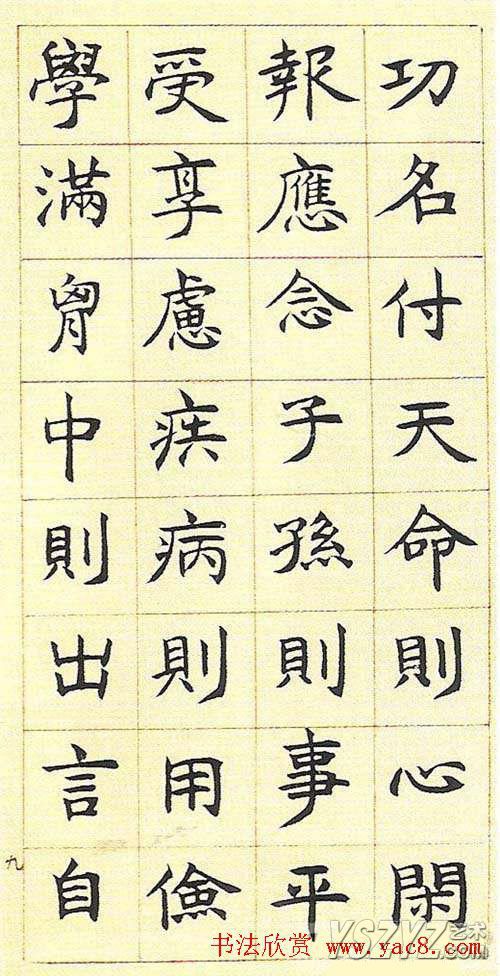 功名付天命則心閑
報應念子孫則事平
受享慮疾病則用儉
學滿胷中則出言自
九
书法欣赏 www.yac8.com